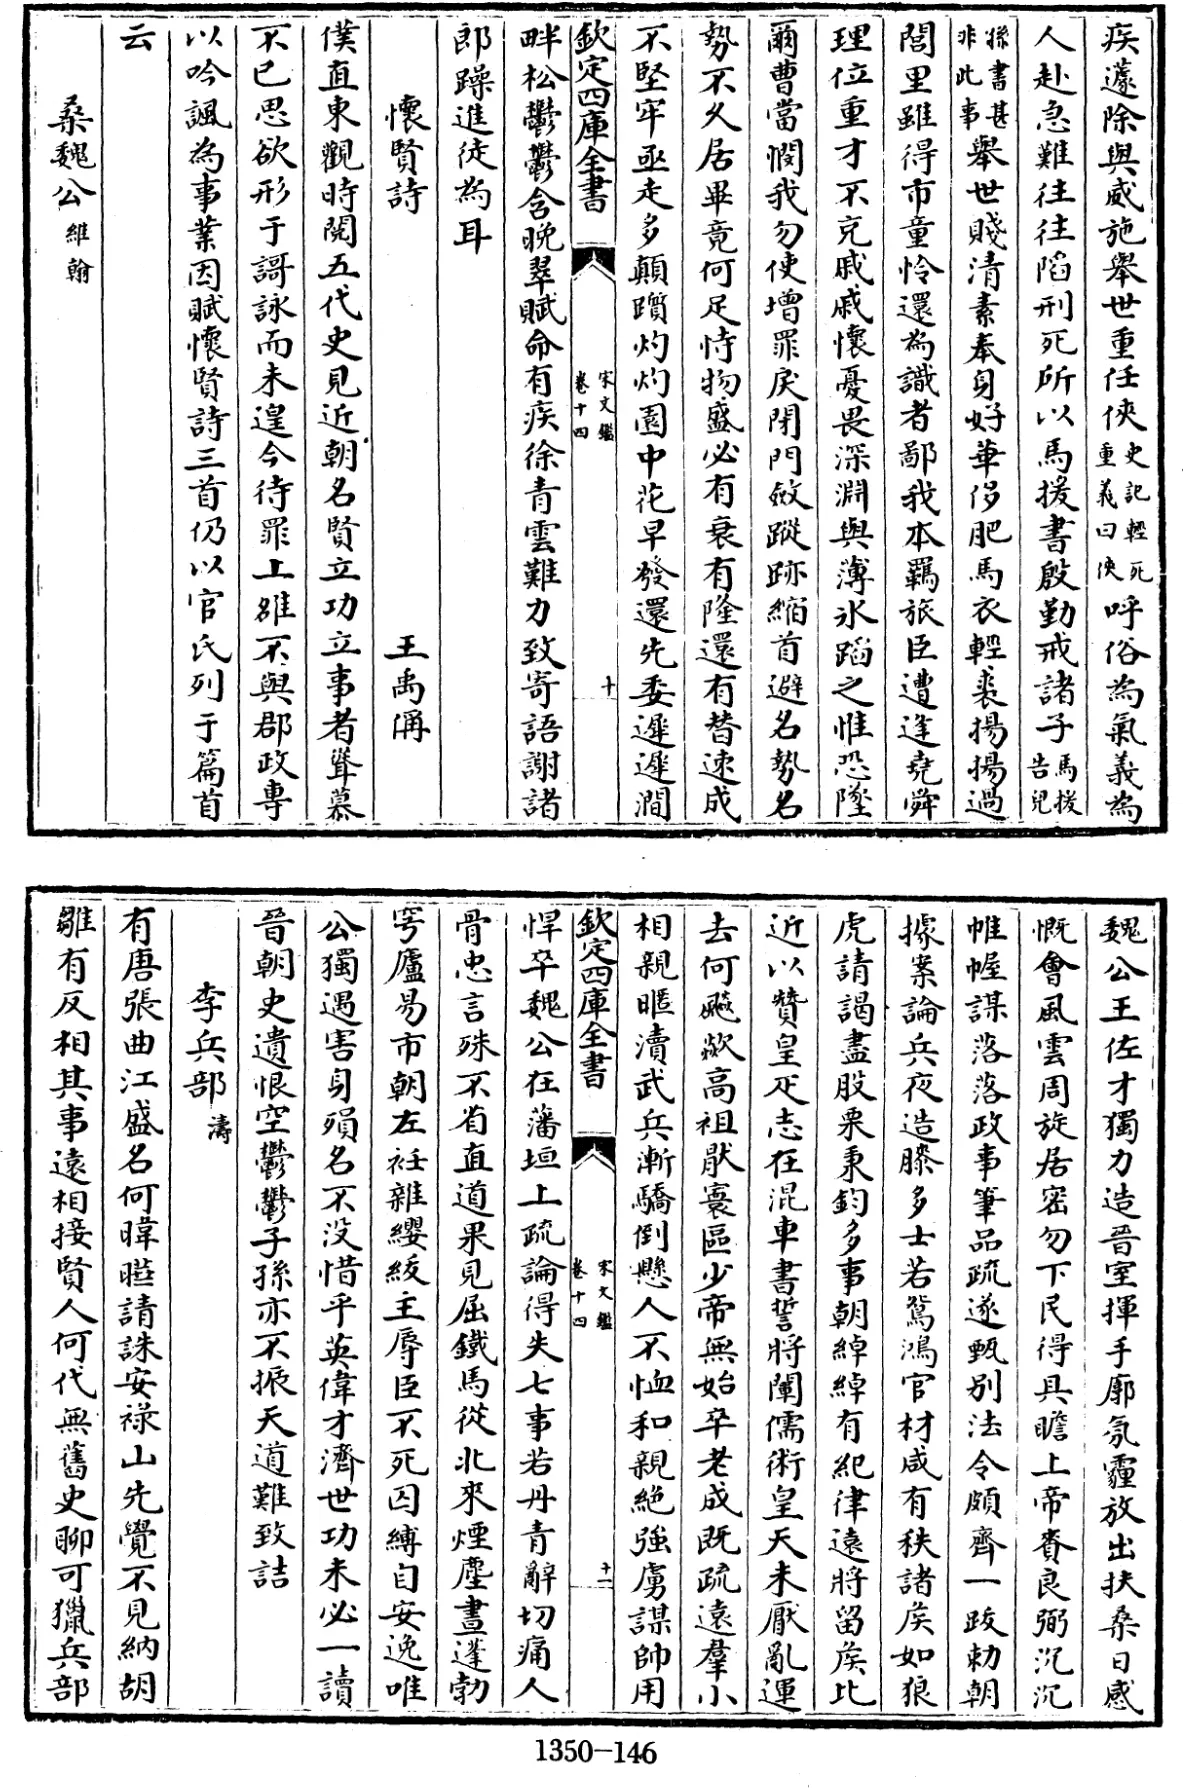 疾蘧除與戚施舉世重任俠史記輕死重義曰俠呼俗為氣義為
人赴急難往往陷刑死所以馬援書殷勤戒諸子馬援告兒
孫書甚非此事舉世賤清素奉身好華侈肥馬衣輕裘揚揚過
閭里雖得市童憐還為識者鄙我本羈旅臣遭逢堯舜
理位重才不克戚戚懷憂畏深淵與薄氷蹈之惟恐墜
爾曹當憫我勿使增罪戾閉門斂蹤跡縮首避名勢名
勢不久居畢竟何足恃物盛必有衰有隆還有替速成
不堅牢亟走多顛躓灼灼園中花早發還先委遲遲澗
欽定四庫全書 宋文鑑 卷十四 十
畔松鬱鬱含晩翠賦命有疾徐青雲難力致寄語謝諸
郎躁進徒為耳
懷賢詩 王禹偁
僕直東觀時閱五代史見近朝名賢立功立事者聳慕
不已思欲形于謌詠而未遑今待罪上雒不與郡政專
以吟諷為事業因賦懷賢詩三首仍以官氏列于篇首
云
桑魏公維翰
魏公王佐才獨力造晉室揮手廓氛霾放出扶桑日感
慨會風雲周旋居密勿下民得具瞻上帝賚良弼沉沉
帷幄謀落落政事筆品疏遂甄别法令頗齊一跋勅朝
據案論兵夜造膝多士若鴛鴻官材咸有秩諸侯如狼
虎請謁盡股栗秉鈞多事朝綽綽有紀律遠將留侯比
近以贊皇疋志在混車書誓將闡儒術皇天未厭亂運
去何飈欻高祖猒寰區少帝無始卒老成既疏遠羣小
相親暱瀆武兵漸驕倒懸人不恤和親絶強虜謀帥用
欽定四庫全書 宋文鑑 卷十四 十一
悍卒魏公在藩垣上疏論得失七事若丹青辭切痛人
骨忠言殊不省直道果見屈鐵馬從北來煙塵晝蓬勃
穹廬易市朝左衽雜纓紱主辱臣不死囚縛自安逸唯
公獨遇害身殞名不没惜乎英偉才濟世功未必一讀
晉朝史遺恨空鬱鬱子孫亦不振天道難致詰
李兵部濤
有唐張曲江盛名何暐曄請誅安禄山先覺不見納胡
雛有反相其事遠相接賢人何代無舊史聊可獵兵部
1350-146